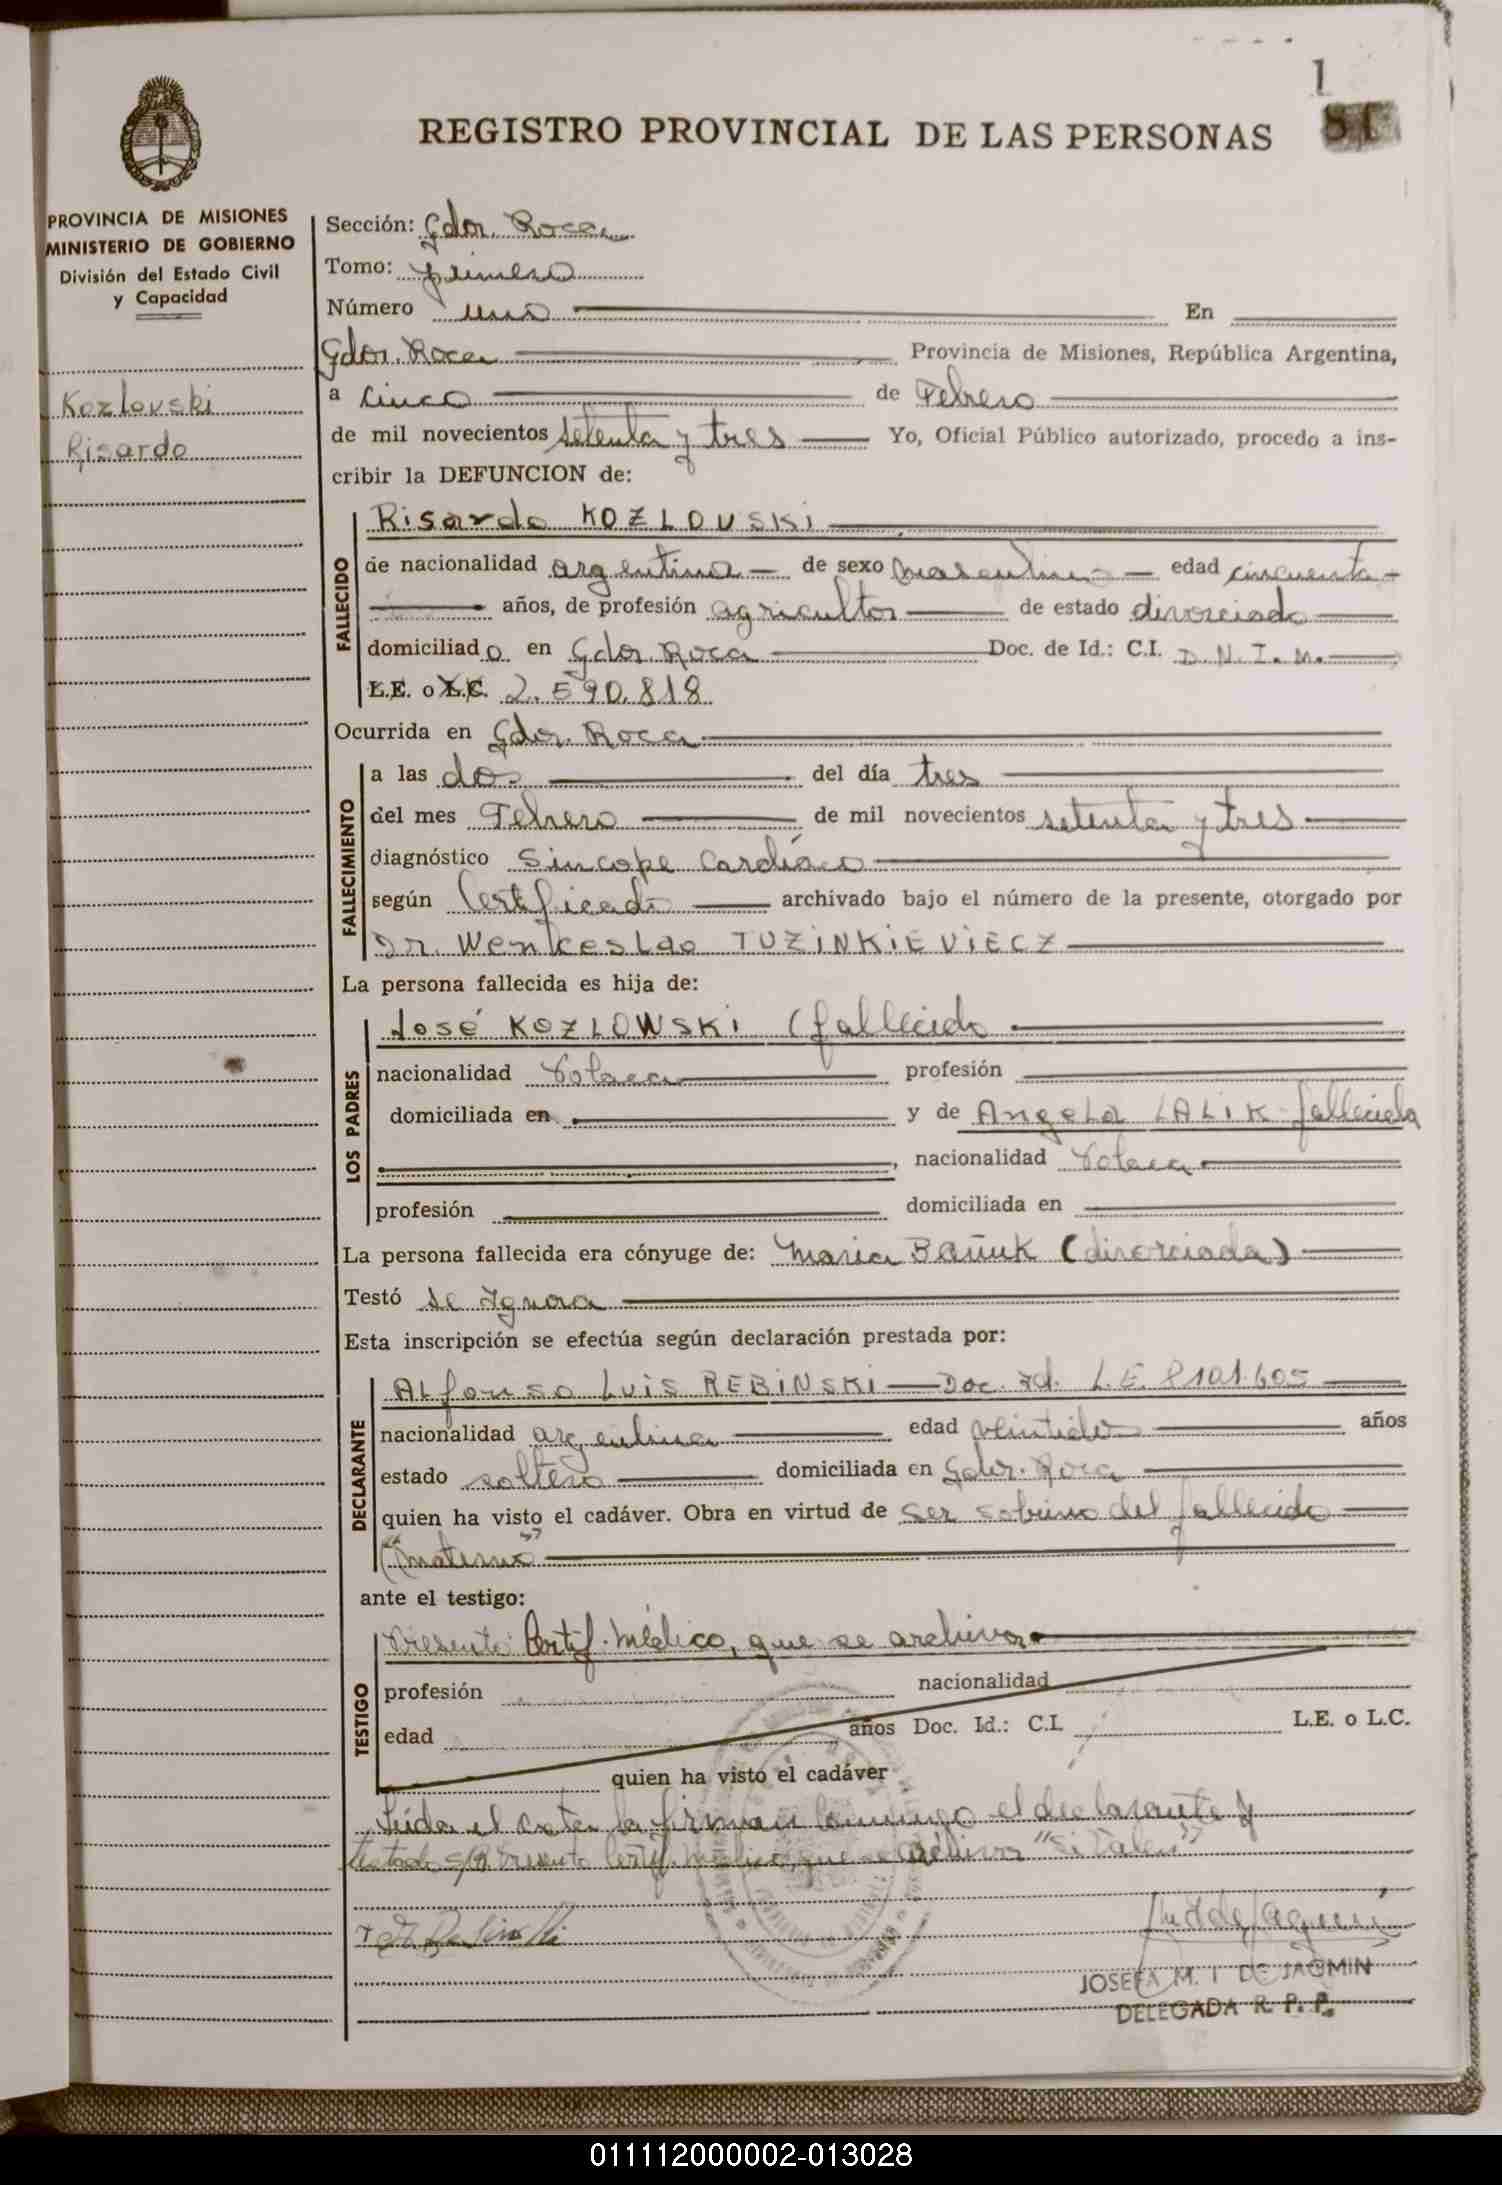 1
REGISTRO PROVINCIAL DE LAS PERSONAS
81
PROVINCIA DE MISIONES
MINISTERIO DE GOBIERNO
División del Estado Civil
y Capacidad
Kozlovski
Risardo
Sección: Gdor. Roca
Tomo: primero
Número uno En
Gdor. Roca Provincia de Misiones, República Argentina,
a cinco de Febrero
de mil novecientos setenta y tres Yo, Oficial Público autorizado, procedo a ins-
cribir la DEFUNCION de:
FALLECIDO
Risardo KOZLOVSKI
de nacionalidad argentina de sexo masculino edad cincuenta
años, de profesión agricultor de estado divorciado
domiciliado en Gdor Roca Doc. de Id.: C.I. D.N.I.M.
L.E. o L.C. 2.590.818
Ocurrida en Gdor. Roca
FALLECIMIENTO
a las dos del día tres
del mes Febrero de mil novecientos setenta y tres
diagnóstico Sincope Cardíaco
según Certificado archivado bajo el número de la presente, otorgado por
Dr. Wenkceslao TUZINKIEVIECZ
La persona fallecida es hija de:
LOS PADRES
José KOZLOWSKI (fallecido
nacionalidad Polaca profesión
domiciliada en y de Angela LALIK fallecida
, nacionalidad Polaca
profesión domiciliada en
La persona fallecida era cónyuge de: Maria BAÑUK (divorciada)
Testó se Ignora
Esta inscripción se efectúa según declaración prestada por:
DECLARANTE
Alfonso Luis REBINSKI Doc. Id. L.E. 8101.605
nacionalidad argentina edad veintidos años
estado soltero domiciliada en Gdor. Roca
quien ha visto el cadáver. Obra en virtud de ser sobrino del fallecido
("materno"
ante el testigo:
TESTIGO
Presento: Certif. Médico, que se archiva
profesión nacionalidad
edad años Doc. Id.: C.I. L.E. o L.C.
quien ha visto el cadáver
Leida el acta la firman conmigo el declarante y
testado s/R Presento Certif. medico que se archiva "Si Vale"
JOSEFA M. I DE JACMIN
DELEGADA R. P. P.
011112000002-013028